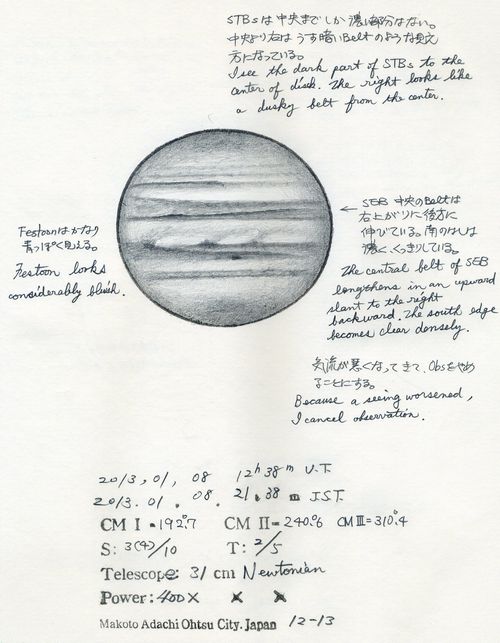 STBsは中央までしか濃い部分はない。
中央より右はうす暗いBeltのような見え
方になっている。
I see the dark part of STBs to the
center of disk. The right looks like
a dusky belt from the center.
← SEB 中央のBeltは
右上がりに後方に
伸びている。南のはしは
濃く、くっきりしている。
The central belt of SEB
lengthens in an upward
slant to the right
backward. The south edge
becomes clear densely.
Festoonはかなり
青っぽく見える。
Festoon looks
considerably bluish.
気流が悪くなってきて、Obsをやめ
ることにする。
Because a seeing worsened,
I cancel observation.
2013, 01, 08 12h 38m U.T.
2013. 01. 08. 21. 38 m J.S.T.
CM I = 192.°7 CM II = 240.°6 CM III = 310.°4
S: 3(4)/10 T: 2/5
Telescope: 31 cm Newtonian
Power: 400× × ×
Makoto Adachi Ohtsu City. Japan 12-13